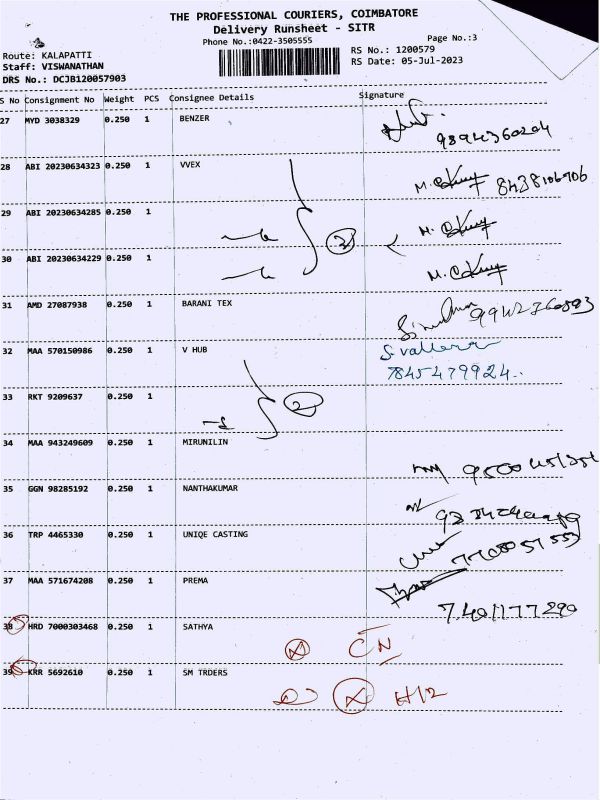 THE PROFESSIONAL COURIERS, COIMBATORE
Delivery Runsheet - SITR
Phone No.:0422-3505555
Page No.:3
Route: KALAPATTI
RS No.: 1200579
Staff: VISWANATHAN
RS Date: 05-Jul-2023
DRS No.: DCJB120057903
S No Consignment No Weight PCS Consignee Details Signature
27 MYD 3038329 0.250 1 BENZER
9894360204
28 ABI 20230634323 0.250 1 VVEX
8438106706
29 ABI 20230634285 0.250 1
2
30 ABI 20230634229 0.250 1
31 AMD 27087938 0.250 1 BARANI TEX
32 MAA 570150986 0.250 1 V HUB
7845479924..
33 RKT 9209637 0.250 1
2
34 MAA 943249609 0.250 1 MIRUNILIN
35 GGN 98285192 0.250 1 NANTHAKUMAR
36 TRP 4465330 0.250 1 UNIQE CASTING
37 MAA 571674208 0.250 1 PREMA
7401177290
38 HRD 7000303468 0.250 1 SATHYA
X CN
39 KRR 5692610 0.250 1 SM TRDERS
X H/2